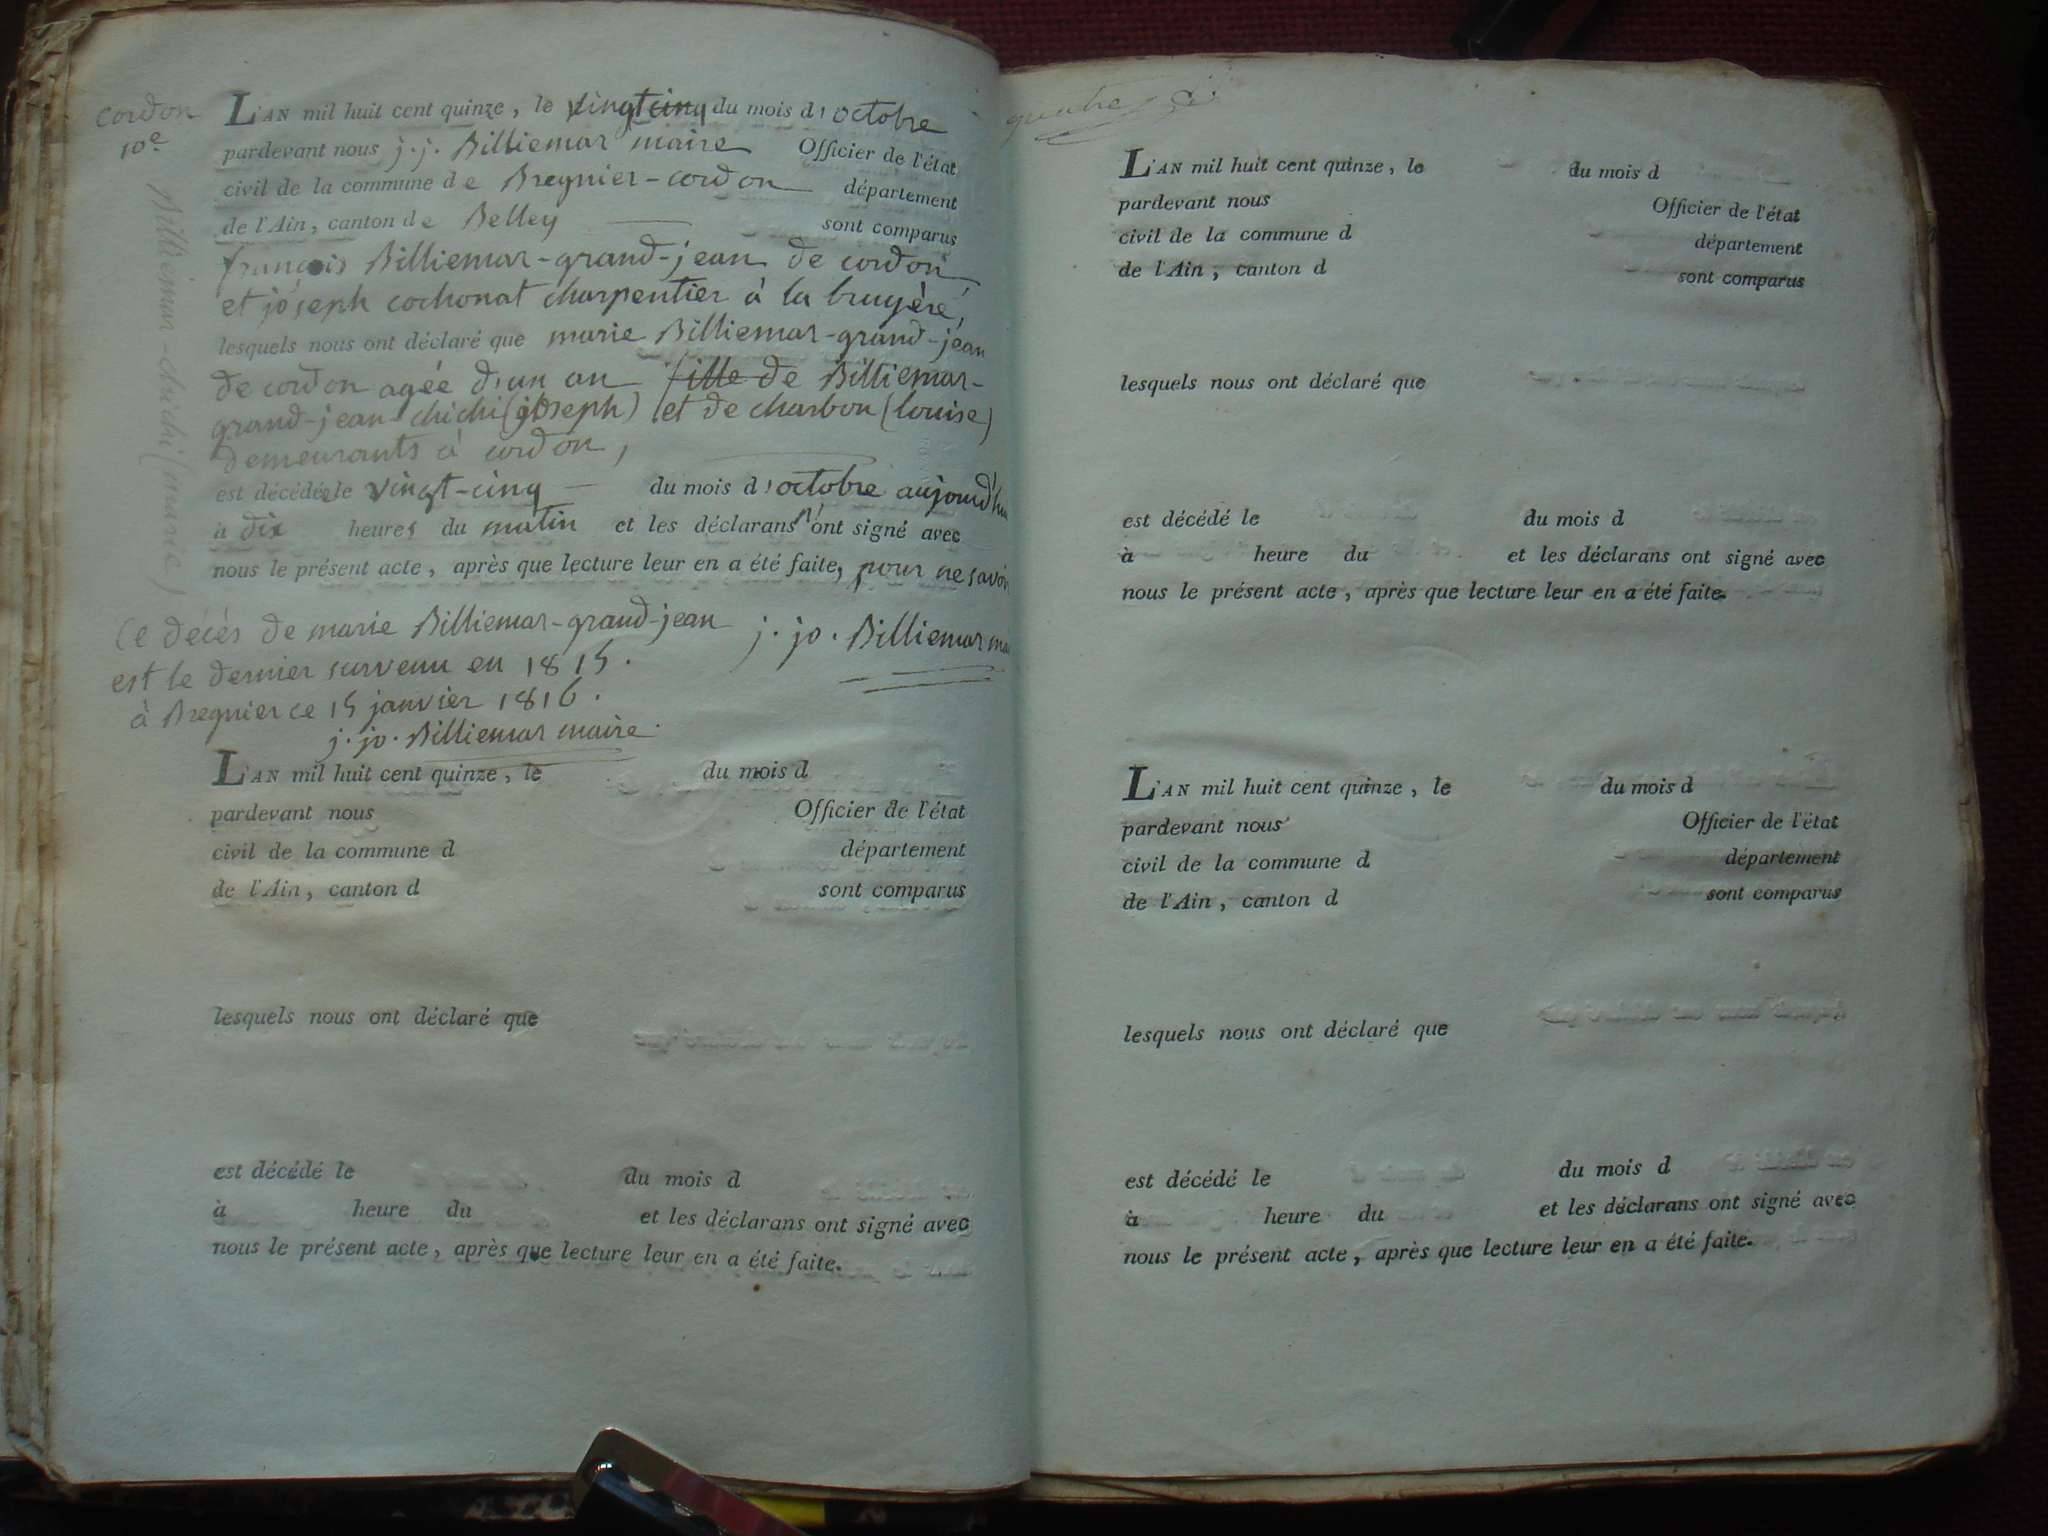 cordon
10e
Billiemar-chichi (marie)
L'AN mil huit cent quinze, le vingtcinq du mois d'octobre
pardevant nous j. j. Billiemar maire Officier de l'état
civil de la commune de Bregnier-cordon département
de l'Ain, canton de Belley sont comparus
françois Billiemar-grand-jean de cordon
et joseph cochonat charpentier à la bruyère,
lesquels nous ont déclaré que marie Billiemar-grand-jean
de cordon agée d'un an fille de Billiemar-
grand-jean chichi (joseph) et de charbon (louise)
demeurants à cordon,
est décédée le vingt-cinq du mois d'octobre aujourd'hui
à dix heures du matin et les déclarans n'ont signé avec
nous le présent acte, après que lecture leur en a été faite, pour ne savoir
j. jo. Billiemar ma
Ce décès de marie Billiemar-grand-jean
est le dernier survenu en 1815.
à Bregnier ce 15 janvier 1816.
j. jo. Billiemar maire
L'AN mil huit cent quinze, le du mois d
pardevant nous Officier de l'état
civil de la commune d département
de l'Ain, canton d sont comparus
lesquels nous ont déclaré que
est décédé le du mois d
à heure du et les déclarans ont signé avec
nous le présent acte, après que lecture leur en a été faite.
quatre
L'AN mil huit cent quinze, le du mois d
pardevant nous Officier de l'état
civil de la commune d département
de l'Ain, canton d sont comparus
lesquels nous ont déclaré que
est décédé le du mois d
à heure du et les déclarans ont signé avec
nous le présent acte, après que lecture leur en a été faite.
L'AN mil huit cent quinze, le du mois d
pardevant nous Officier de l'état
civil de la commune d département
de l'Ain, canton d sont comparus
lesquels nous ont déclaré que
est décédé le du mois d
à heure du et les déclarans ont signé avec
nous le présent acte, après que lecture leur en a été faite.